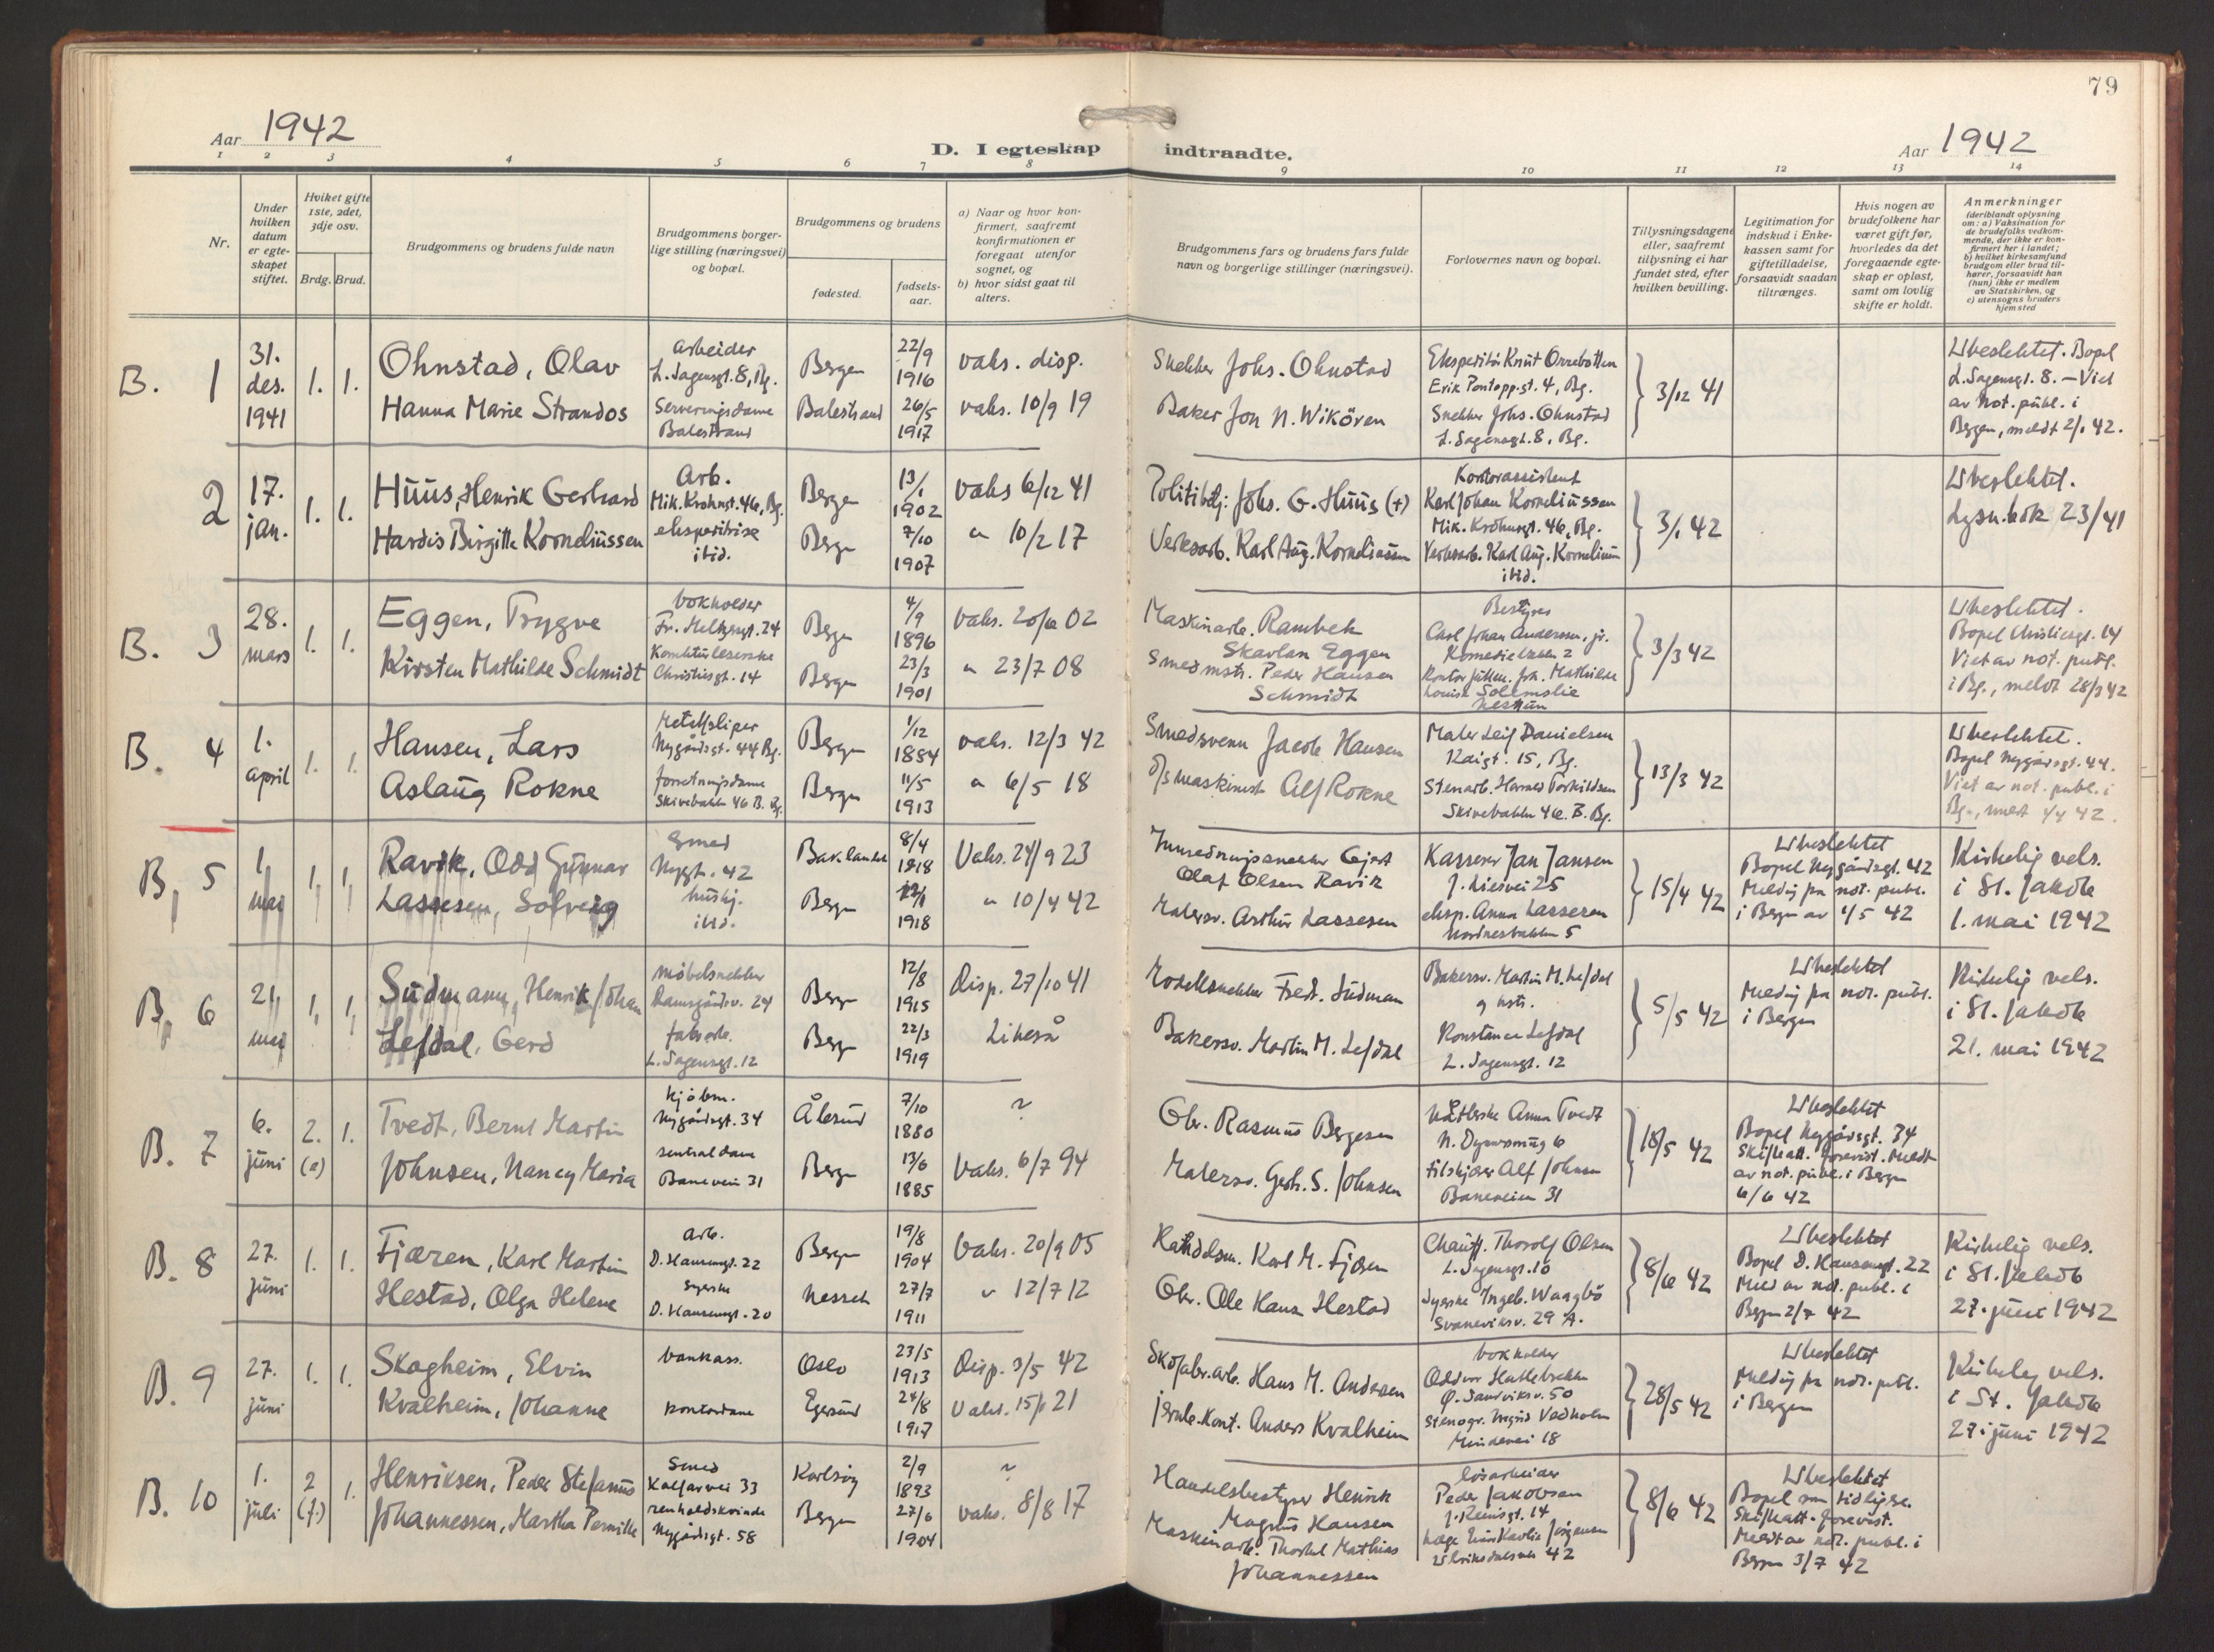 79
Aar 1942
D. I egteskap indtraadte.
Aar 1942
1 2 3 4 5 6 7 8 9 10 11 12 13 14
Nr.
Under hvilken datum er egte-skapet stiftet.
Hviket gifte 1ste, 2det, 3dje osv.
Brdg. Brud.
Brudgommens og brudens fulde navn
Brudgommens borger-lige stilling (næringsvei) og bopæl.
Brudgommens og brudens
fødested.
fødsels-aar.
a) Naar og hvor kon-firmert, saafremt konfirmationen er foregaat utenfor sognet, og
b) hvor sidst gaat til alters.
Brudgommens fars og brudens fars fulde navn og borgerlige stillinger (næringsvei).
Forlovernes navn og bopæl.
Tillysningsdagene eller, saafremt tillysning ei har fundet sted, efter hvilken bevilling.
Legitimation for indskud i Enke-kassen samt for giftetilladelse, forsaavidt saadan tiltrænges.
Hvis nogen av brudefolkene har været gift før, hvorledes da det foregaaende egte-skap er opløst, samt om lovlig skifte er holdt.
Anmerkninger
(deriblandt oplysning om: a) Vaksination for de brudefolks vedkom-mende, der ikke er kon-firmert her i landet; b) hvilket kirkesamfund brudgom eller brud til-hører, forsaavidt han (hun) ikke er medlem av Statskirken, og c) utensogns bruders hjemsted
B. 1
31. des. 1941
1. 1.
Ohnstad, Olav
Hanna Marie Strandos
arbeider
L. Sagensgt. 8, Bg.
Serveringsdame
Balestrand
Bergen
Balestrand
22/9 1916
26/5 1917
vaks. disp.
vaks. 10/9 19
Snekker Johs. Ohnstad
Baker Jon N. Wikören
Ekspeditör Knut Orrebotten
Erik Pontopp.gt. 4, Bg.
Snekker Johs. Ohnstad
L. Sagensgt. 8, Bg.
3/12 41
Ubeslektet. Bopel
L. Sagensgt. 8. – Viet
av not. publ. i
Bergen, meldt 2/1 42.
2
17. jan.
1. 1.
Huus, Henrik Gerhard
Hardis Birgitte Korneliussen
Arb.
Mik. Krohnsgt. 46, Bg.
ekspeditrise
ibid.
Bergen
Bergen
13/1 1902
7/10 1907
vaks 6/12 41
" 10/2 17
Politibtj: Johs. G. Huus (+)
Verksarb. Karl Aug. Korneliussen
Kontorassistent
Karl Johan Korneliussen
Mik. Krohnsgt. 46, Bg.
Verksarb. Karl Aug. Korneliussen
ibid.
3/1 42
Ubeslektet.
Lysn.bok 23/41
B. 3
28. mars
1. 1.
Eggen, Trygve
Kirsten Mathilde Schmidt
bokholder
Fr. Meltzersgt. 24
Korrekturleserske
Christiesgt. 14
Bergen
Bergen
4/9 1896
23/3 1901
vaks. 20/6 02
" 23/7 08
Maskinarb. Rambek
Skavlan Eggen
Smedmstr. Peder Hansen
Schmidt
Bestyrer
Carl Johan Andersen, jr.
Komediebakken 2
Louise Solemslie
Nesttun
3/3 42
Ubeslektet.
Bopel Christiesgt. 14
Viet av not. publ.
i Bg., meldt 28/3 42
B. 4
1. april
1. 1.
Hansen, Lars
Aslaug Rokne
Metallsliper
Nygårdsgt. 44 Bg.
forretningsdame
Skivebakken 46 B. Bg.
Bergen
Bergen
1/12 1884
11/5 1913
vaks. 12/3 42
" 6/5 18
Smedsvenn Jacob Hansen
D/S maskinist Alf Rokne
Maler Leif Danielsen
Kaigt. 15, Bg.
Stenarb. Hannes Torkildsen
Skivebakken 46. B. Bg.
13/3 42
Ubeslektet.
Bopel Nygårdsgt. 44.
Viet av not. publ. i
Bg., meldt 1/4 42.
B. 5
1. mai
1. 1.
Ravik, Odd Gunnar
Lassesen, Solveig
Smed
Nygt. 42
hushj.
ibid.
Baklandet
Bergen
8/4 1818
1918
Vaks. 24/9 23
" 10/4 42
Olaf Olsen Ravik
Malersv. Arthur Lassesen
Kasserer Jan Jansen
J. Liesvei 25
eksp. Anna Lassesen
Nordnesbakken 5
15/4 42
Ubeslektet
Bopel Nygårdsgt. 42
Melding fra not. publ.
i Bergen av 1/5 42
Kirkelig vels.
i St. Jakob
1. mai 1942
B. 6
21. mai
1. 1.
Sudmann, Henrik Johan
Lefdal, Gerd
möbelsnekker
Damsgårdsv. 24
fabrarb.
L. Sagensgt. 12
Bergen
Bergen
12/8 1915
22/3 1919
Disp. 27/10 41
Likeså
Modellsnekker Fredr. Sudman
Bakersv. Martin M. Lefdal
Bakersv. Martin M. Lefdal
og hstr.
Konstance Lefdal
L. Sagensgt. 12
5/5 42
Ubeslektet
Melding fra not. publ.
i Bergen
Kirkelig vels.
i St. Jakob
21. mai 1942
B. 7
6. juni
2. (e) 1.
Tvedt, Bernt Martin
Johnsen, Nancy Maria
kjöbm.
Nygårdsgt. 34
sentraldame
Banevein 31
Ålesund
Bergen
7/10 1880
13/6 1885
~
Vaks. 6/7 94
Gbr. Rasmus Bergesen
Malersv. Gerh. S. Johnsen
Anna Tvedt
filskjærer Alf Johnsen
Baneveien 31
18/5 42
Ubeslektet
Bopel Nygårdsgt. 34
Skifteatt. forevist. Meldt
av not. publ. i Bergen
6/6 42
B. 8
27. juni
1. 1.
Fjæren, Karl Martin
Hestad, Olga Helene
arb.
D. Hansensgt. 22
syerske
D. Hansensgt. 20
Bergen
Nesset
19/8 1904
27/7 1911
Vaks. 20/9 05
" 12/7 12
Karl M. Fjæren
Gbr. Ole Hans Hestad
Chauff. Thorolf Olsen
L. Sagensgt. 10
syerske Ingeb. Waagbö
Svaneviksv. 29 A.
8/6 42
Ubeslektet
Bopel D. Hansensgt. 22
Meld av not. publ. i
Bergen 2/7 42
Kirkelig vels.
i St. Jakob
27. juni 1942
B. 9
27. juni
1. 1.
Skogheim, Elvin
Kvalheim, Johanne
bankass.
kontordame
Oslo
Egersund
23/5 1913
24/8 1917
Disp. 3/5 42
Vaks. 15/1 21
Skofabr.arb. Hans M. Andersen
jernb.kont. Anders Kvalheim
bokholder
Oddvar Hattlebrekke
Ö. Sandviksv. 50
stenogr. Ingrid Vedholm
Mindevei 18
28/5 42
Ubeslektet
Melding fra not. publ.
i Bergen
Kirkeleg vels.
i St. Jakob
27. juni 1942
B. 10
1. juli
2 (f.) 1.
Henriksen, Peder Stefanus
Johannessen, Martha Pernille
Smed
Kalfarvei 33
renholdskvinde
Nygårdsgt. 58
Karlsöy
Bergen
2/9 1893
27/6 1904
~
vaks. 8/8 17
Handelsbestyrer Henrik
Magnus Hansen
Maskinarb. Thorkel Mathias
Johannessen
lösarbeider
Peder Jakobsen
Ulriksdalsvei 42
8/6 42
Ubeslektet
Bopel som tidligere.
Skifteatt. forevist.
Meldt av not. publ. i
Bergen 3/7 42